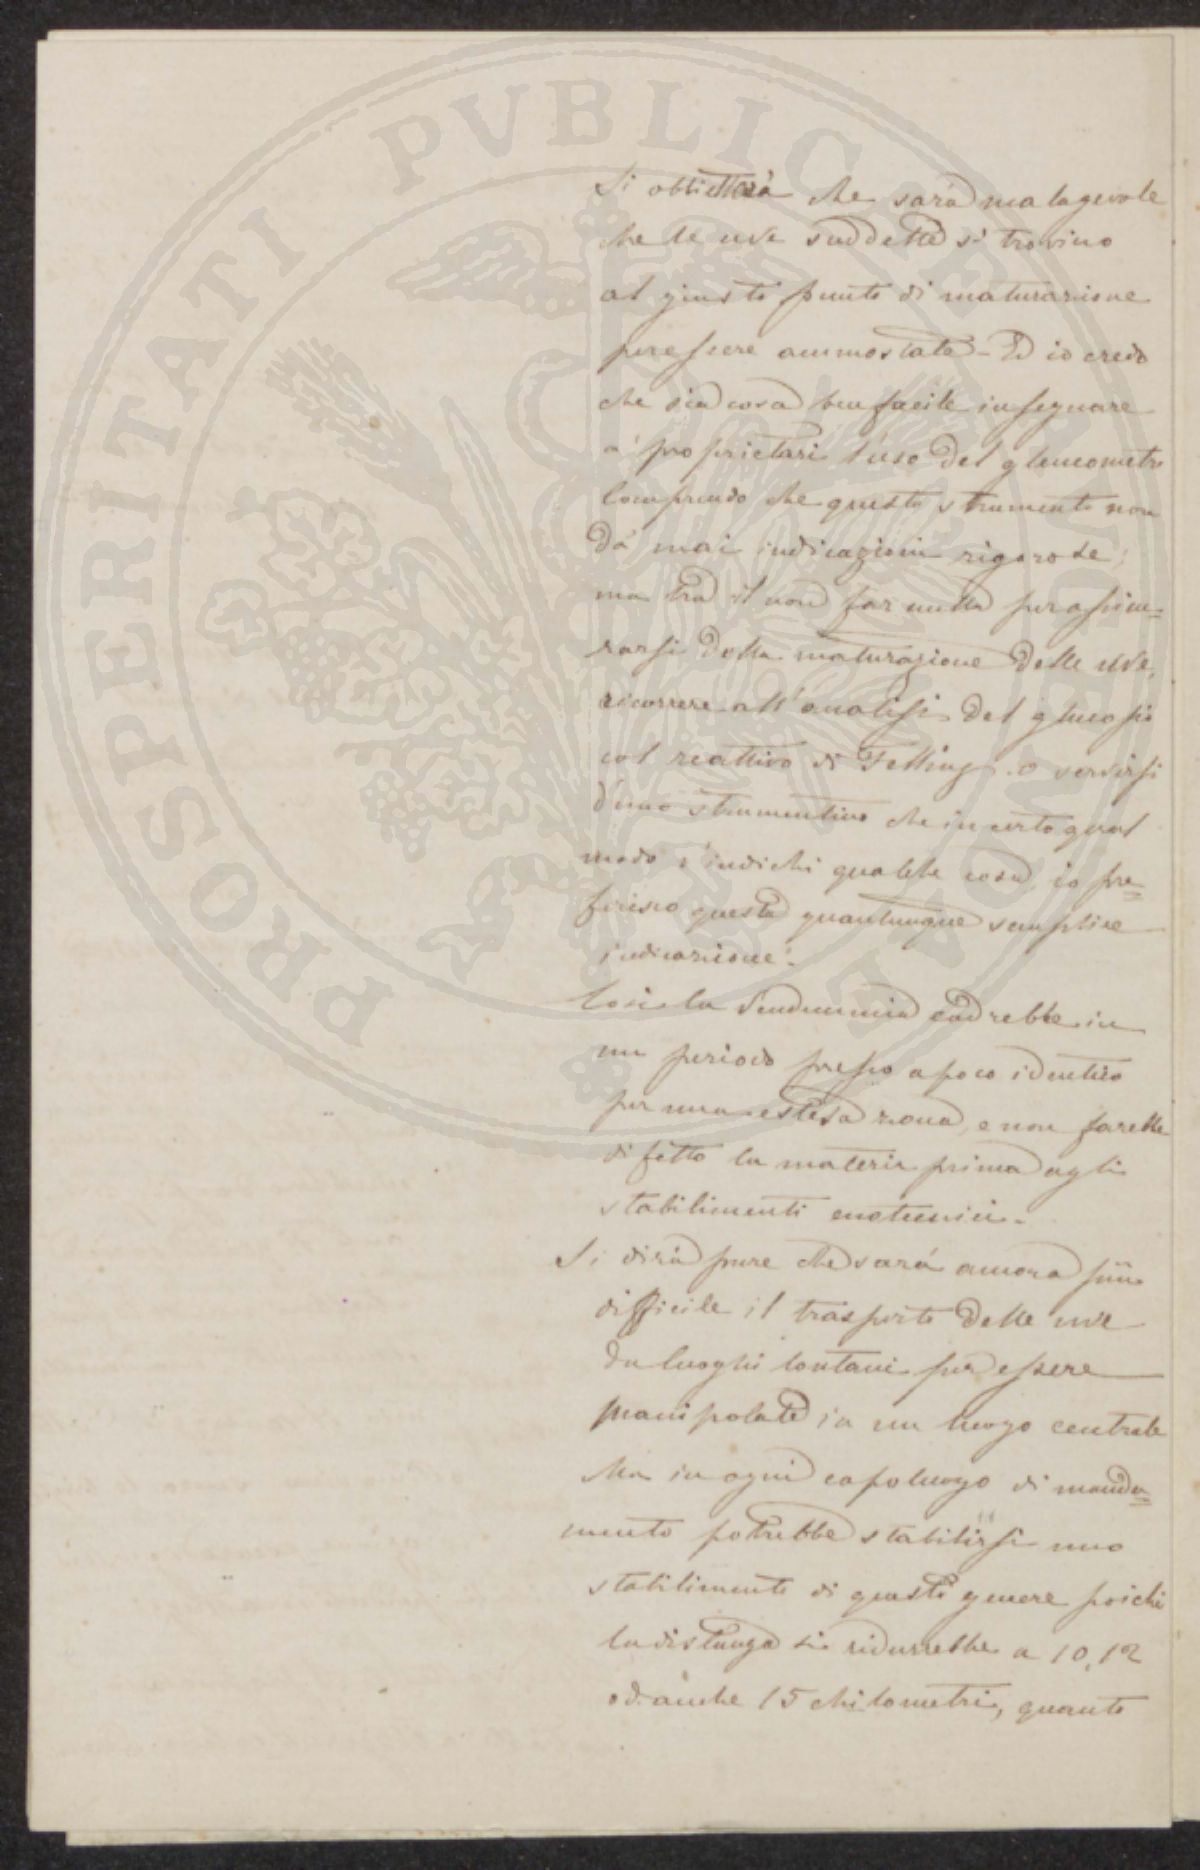 PROSPERITATI PVBLICAE AVGENDAE
Si obbietterà che sarà malagevole
che le uve suddette si trovino
al giusto punto di maturazione
per essere ammostate - Ed io credo
che sia cosa ben facile insegnare
a' proprietari l'uso del gleucometro
Comprendo che questo strumento non
dà mai indicazioni rigorose;
ma tra il non far nulla per assicu=
rarsi della maturazione delle uve,
ricorrere all'analisi del glucosio
col reattivo di Felling o servirsi
d'uno strumentino che in certo qual
modo v'indichi qualche cosa, io pre=
ferisco questa quantunque semplice
indicazione.
Così la Vendemmia cadrebbe in
un periodo presso a poco identico
per una estesa zona, e non farebbe
difetto la materia prima agli
stabilimenti enotecnici.
Si dirà pure che sarà ancora più
difficile il trasporto delle uve
da luoghi lontani per essere
manipolate in un luogo centrale
Ma in ogni capoluogo di manda=
mento potrebbe stabilirsi uno
stabilimento di questo genere poichè
la distanza si ridurrebbe a 10, 12
od anche 15 chilometri, quanto